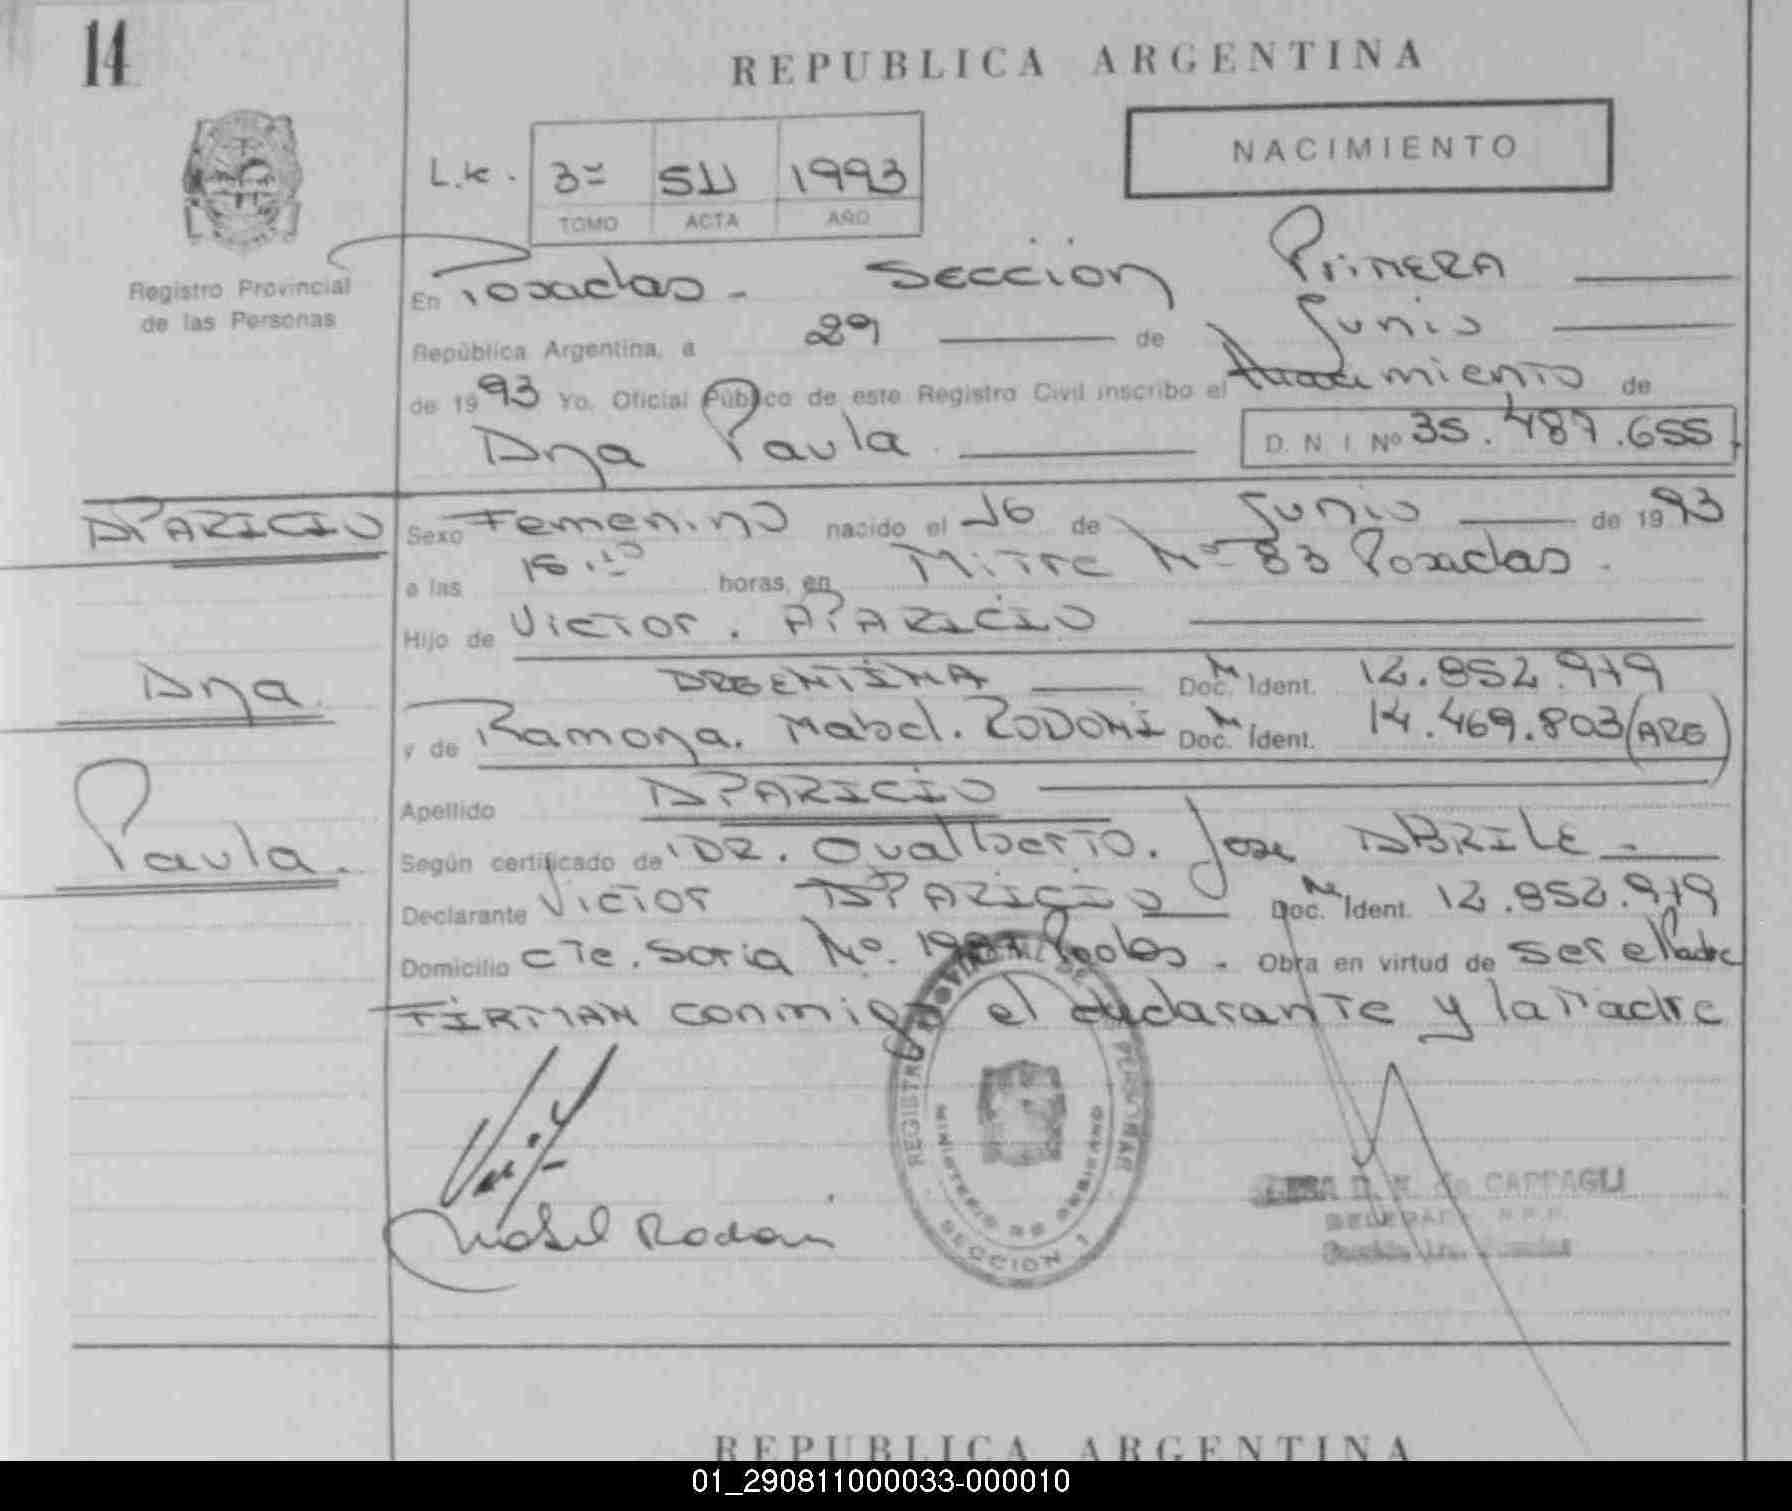 14
REPUBLICA ARGENTINA
NACIMIENTO
3º 511 1993
TOMO ACTA AÑO
Registro Provincial
de las Personas
En Posadas - Sección Primera
República Argentina, a 29 de Junio
de 1993 Yo, Oficial Público de este Registro Civil inscribo el Nacimiento de
Ana Paula
D. N. I Nº 35.487.655
APARICIO
Ana
Paula.
Sexo Femenino nacido el 16 de Junio de 1993
a las horas, en Mitre Nº 83 Posadas.
Hijo de Victor. APARICIO
ARGENTINA Doc. Ident. 12.852.979
y de Ramona. Mabel. RODONI Doc. Ident. 14.469.803 (ARG)
Apellido APARICIO
Según certificado de DR. Oualberto. Jose ABRILE -
Declarante Victor APARICIO Doc. Ident. 12.852.979
Domicilio cte. Soria Nº. Obra en virtud de ser el Padre
FIRMAN conmigo el declarante y la Madre
Mabel Rodoni
REGISTRO PROVINCIAL DE LAS PERSONAS
MINISTERIO DE GOBIERNO
SECCION 1
de CAPPAGLI
REPUBLICA ARGENTINA
01_290811000033-000010